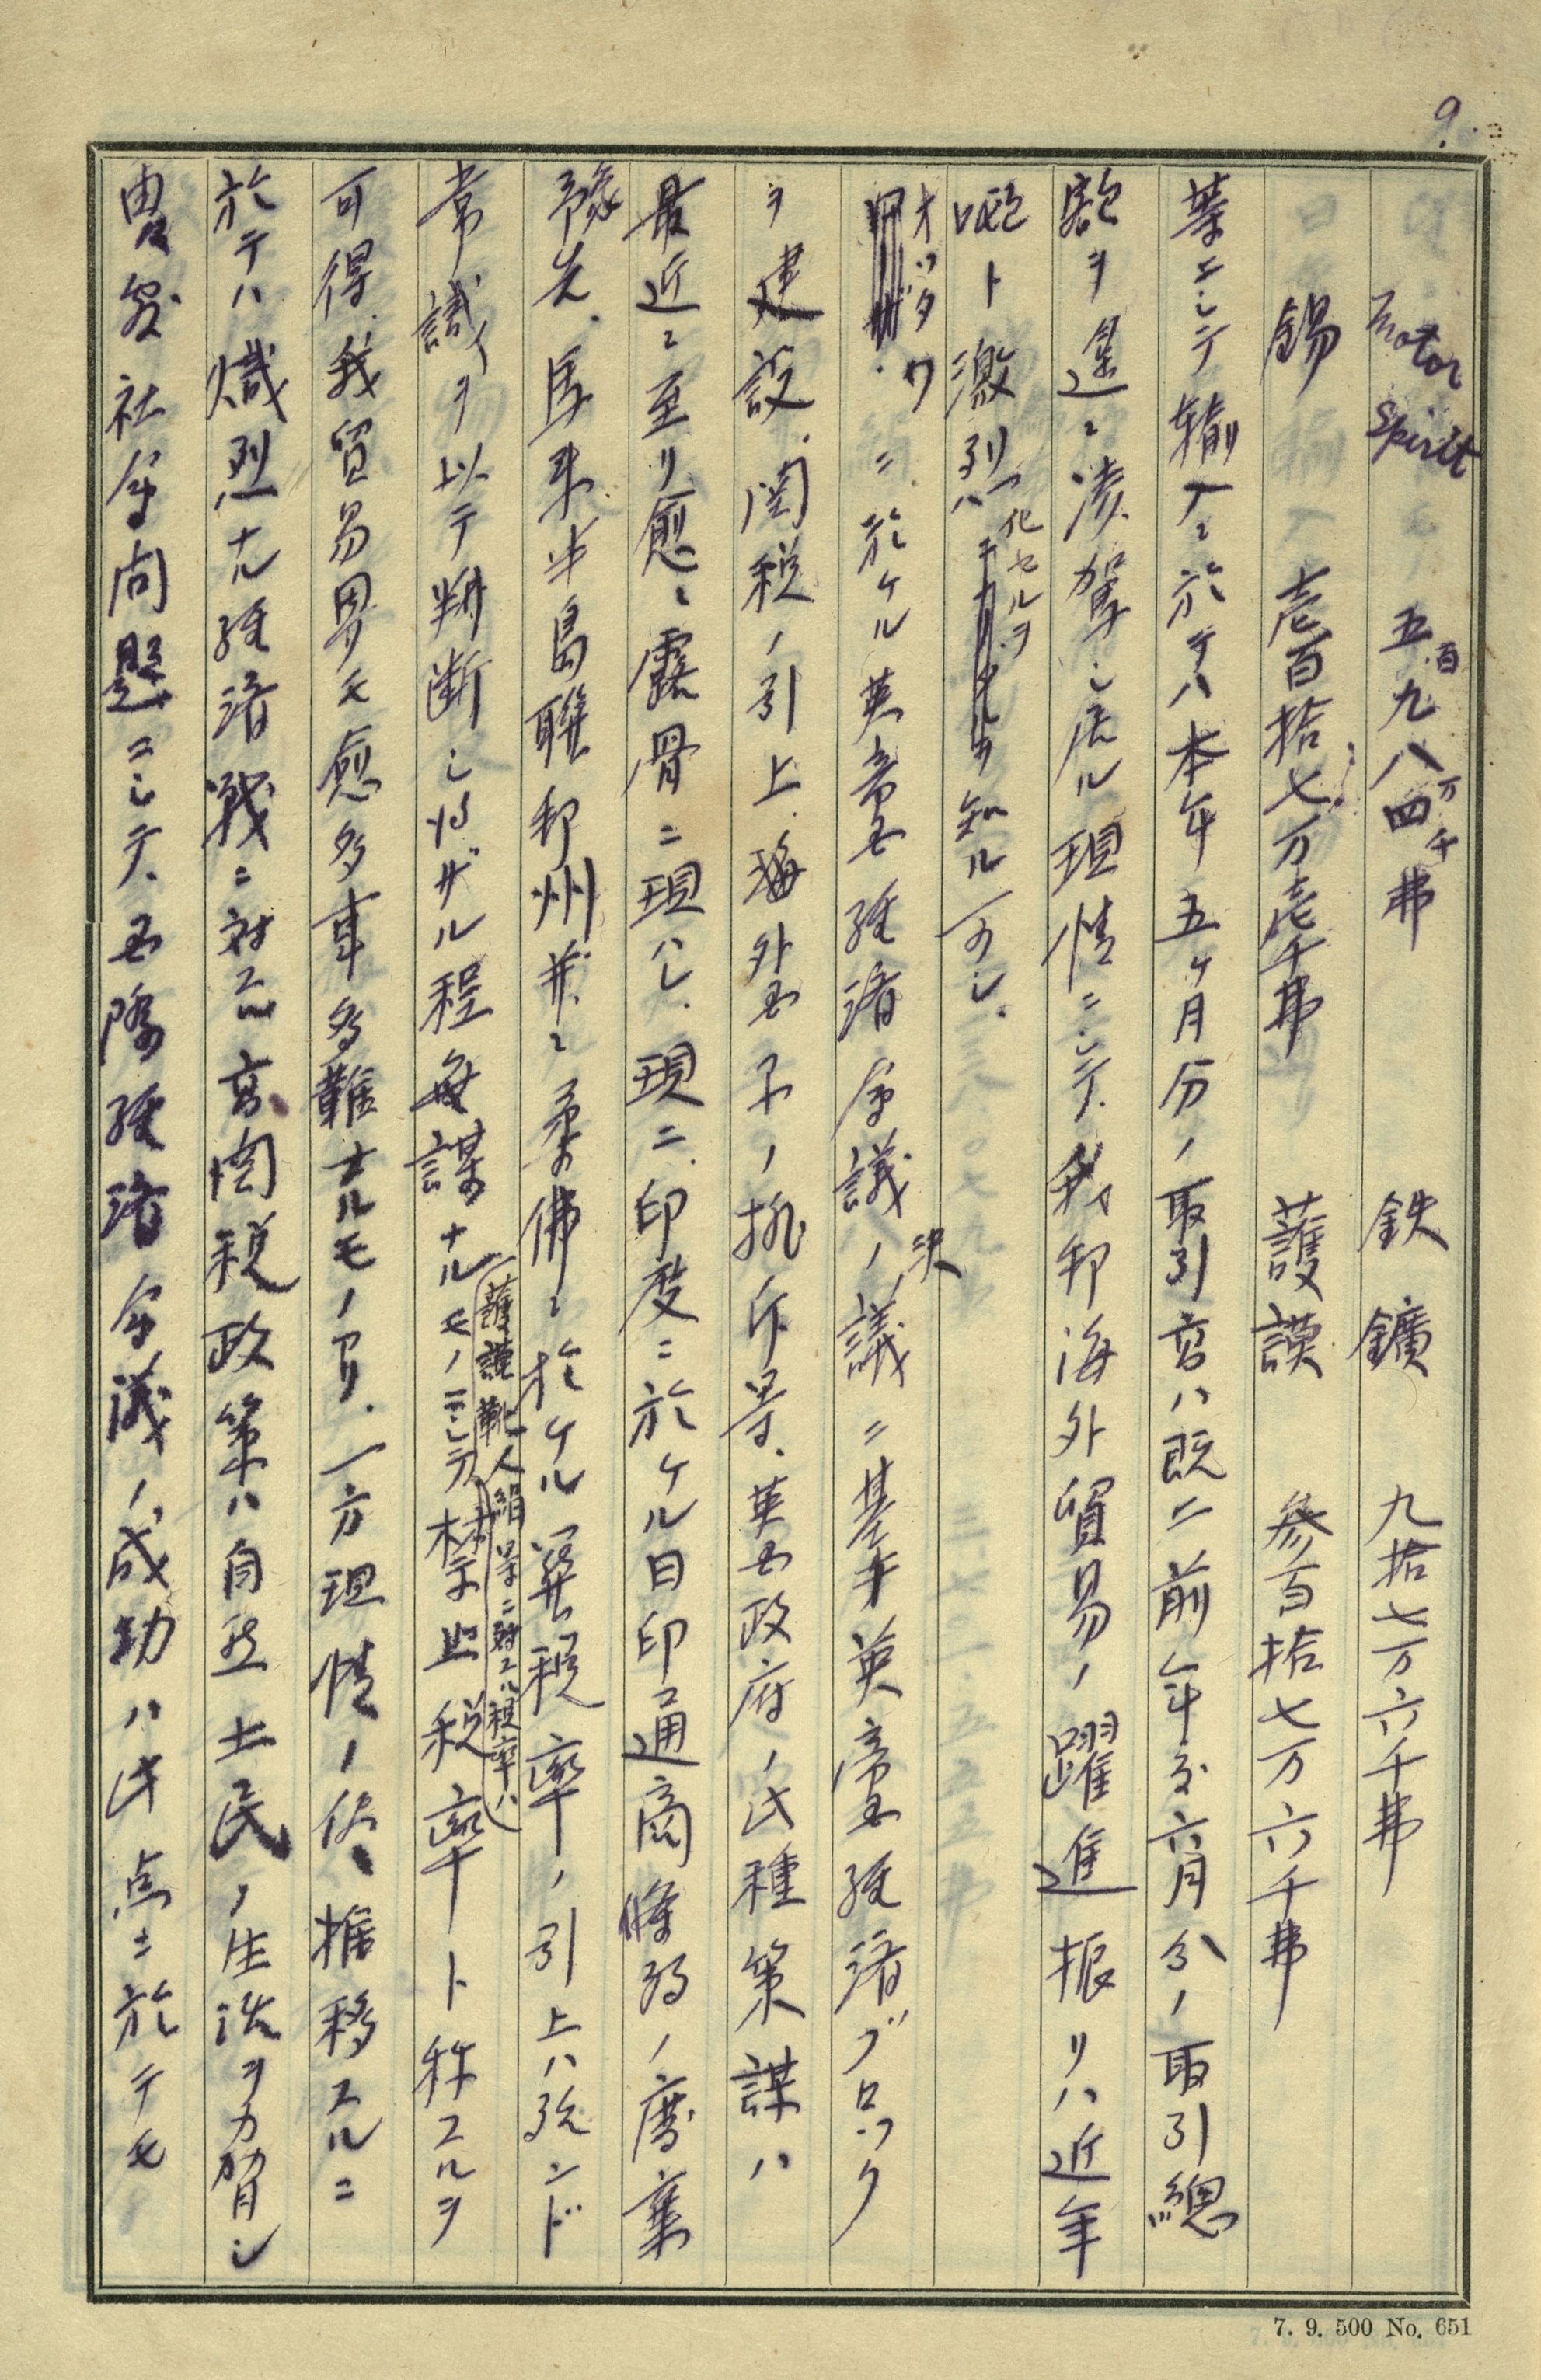 9.
Motor Spirit 五百九八四万千弗 鉄鑛 九拾七万六千弗
錫 壱百拾七万壱千弗 護謨 参百拾七万六千弗
等ニシテ輸入ニ於テハ本年五ヶ月分ノ取引高ハ既ニ前年度六月分ノ取引總
額ヲ遙ニ凌駕シ居ル現情ニシテ、我邦海外貿易ノ躍進振リハ近年
頓ト激烈化セルヲ知ル可シ.
オッタワニ於ケル英帝国経済会議ノ決議ニ基キ英帝国経済ブロック
ヲ建設、関税ノ引上、海外国品ノ排斥等、英国政府ノ此種策謀ハ
最近ニ至リ愈々露骨ニ現ハレ.現ニ印度ニ於ケル日印通商條約ノ廃棄
豫告.馬来半島聯邦州並ニ柔佛ニ於ケル関税率ノ引上ハ殆ンド
常識ヲ以テ判断シ得ザル程無謀ナルモノニシテ、(護謨靴人絹等ニ対スル税率ハ)禁止税率ト称スルヲ
可得.我貿易界モ愈多事多難ナルモノアリ.一方現情ノ侭推移スルニ
於テハ熾烈ナル経済戦ニ対スル高関税政策ハ自然土民ノ生活ヲ加脅シ
曳テ社会問題ニシテ、国際経済会議ノ成功ハ此点ニ於テモ
7. 9. 500 No. 651